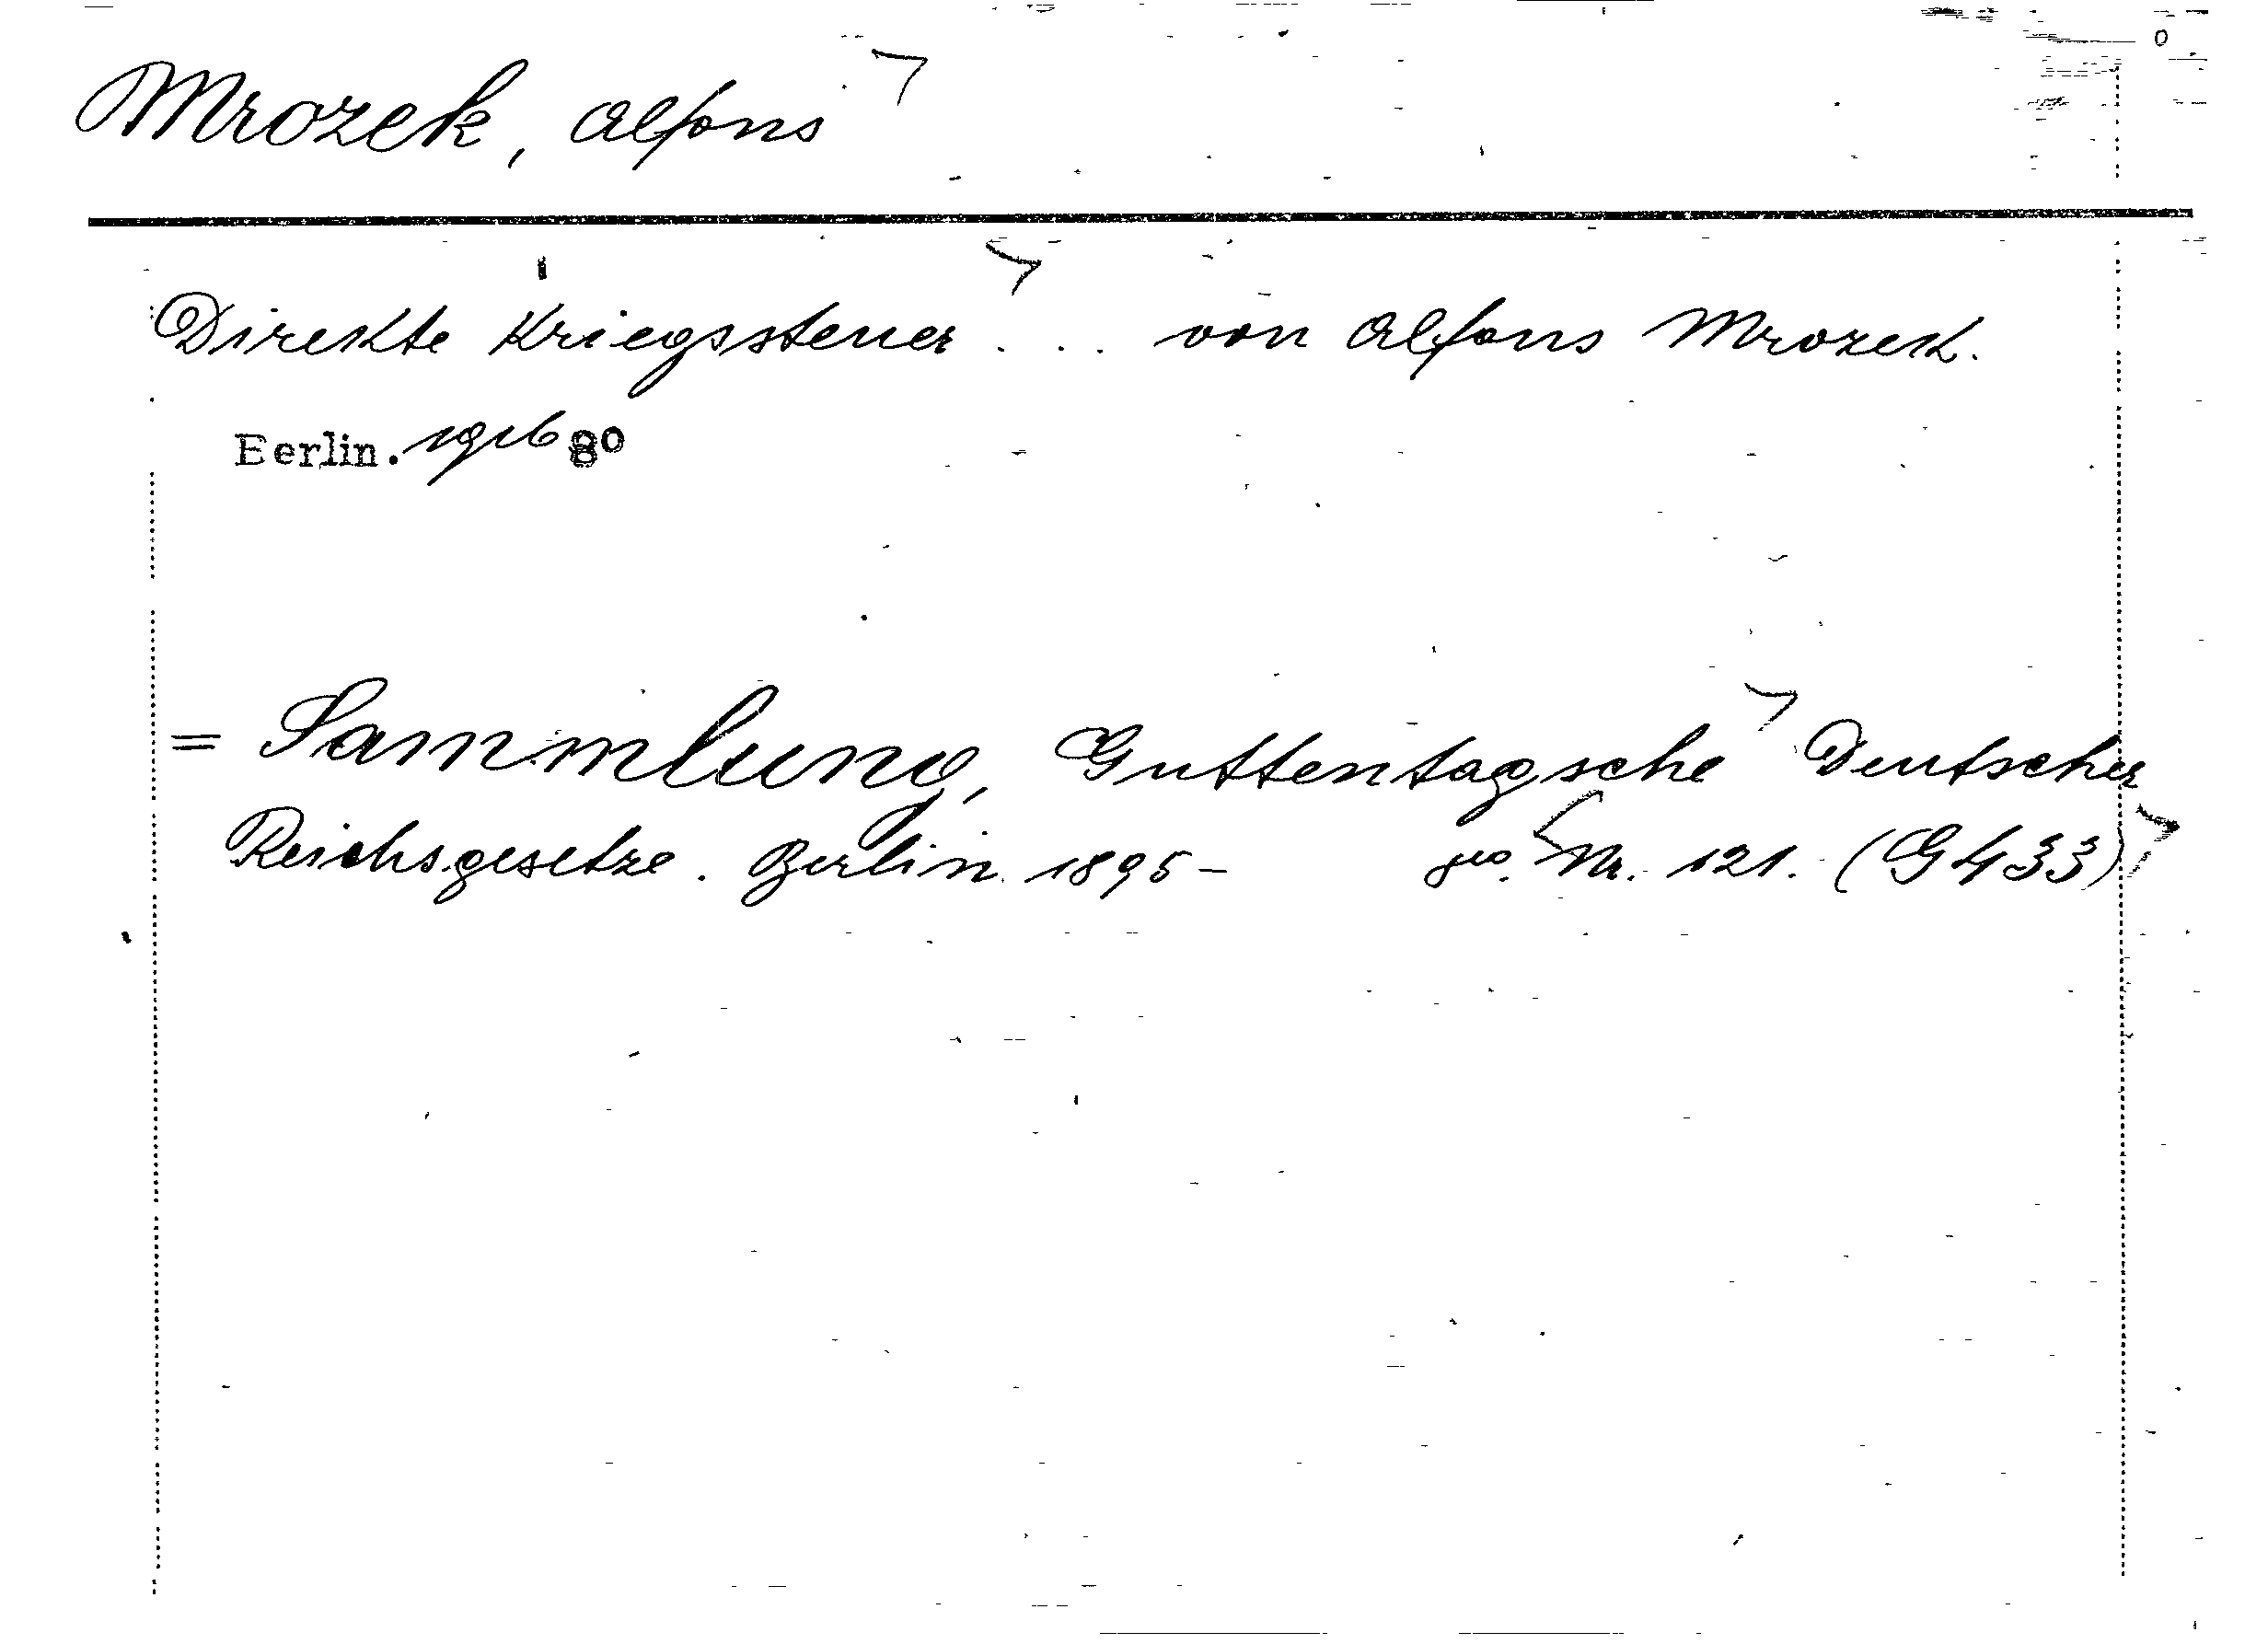 Mrozek, Alfons
Direkte Kriegssteuer ... von Alfons Mrozek.
Berlin. 1916 8°
= Sammlung, Guttentagsche Deutscher
Reichsgesetze. Berlin. 1895- Nr. 121. (G 433)